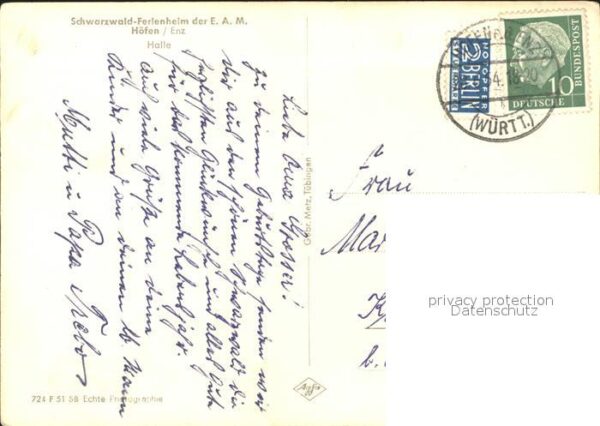 Schwarzwald-Ferienheim der E. A. M.
Höfen / Enz
Halle
Liebe Anna
Zu deinem Geburtstage senden wir
dir aus dem schönen Schwarzwald die
herzlichsten Glückwünsche und alles Gute
für das kommende Lebensjahr.
auch viele Grüße an deine
Kinder und an deinen lb Mann
Mutti u Papa
724 F 51 SB Echte Photographie
Gebr. Metz, Tübingen
NOTOPFER
2 BERLIN
STEUERMARKE
10
DEUTSCHE
BUNDESPOST
(WÜRTT.)
Frau
Mar
b.
privacy protection
Datenschutz
Agfa